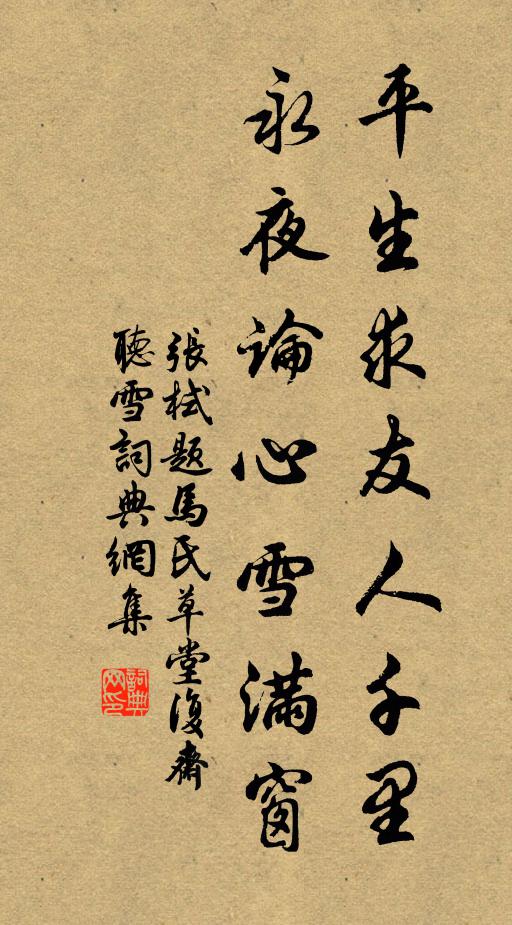 平生求友人千里
永夜論心雪滿窗
張栻題馬氏草堂復齋
聽雪詞典網集
詞典
网印